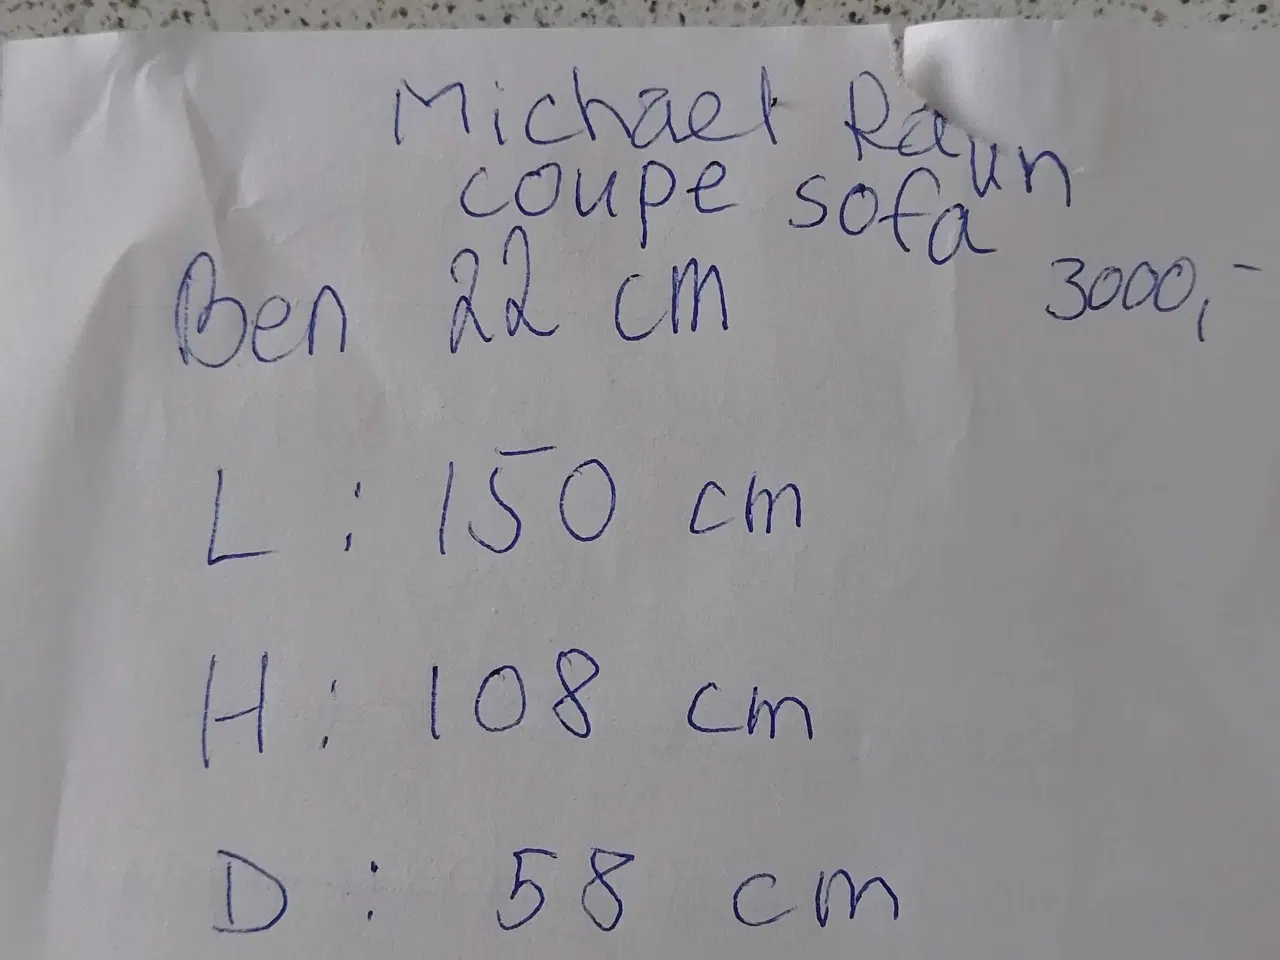 Michael Raun
coupe sofa
3000,-
Ben 22 cm
L : 150 cm
H : 108 cm
D : 58 cm